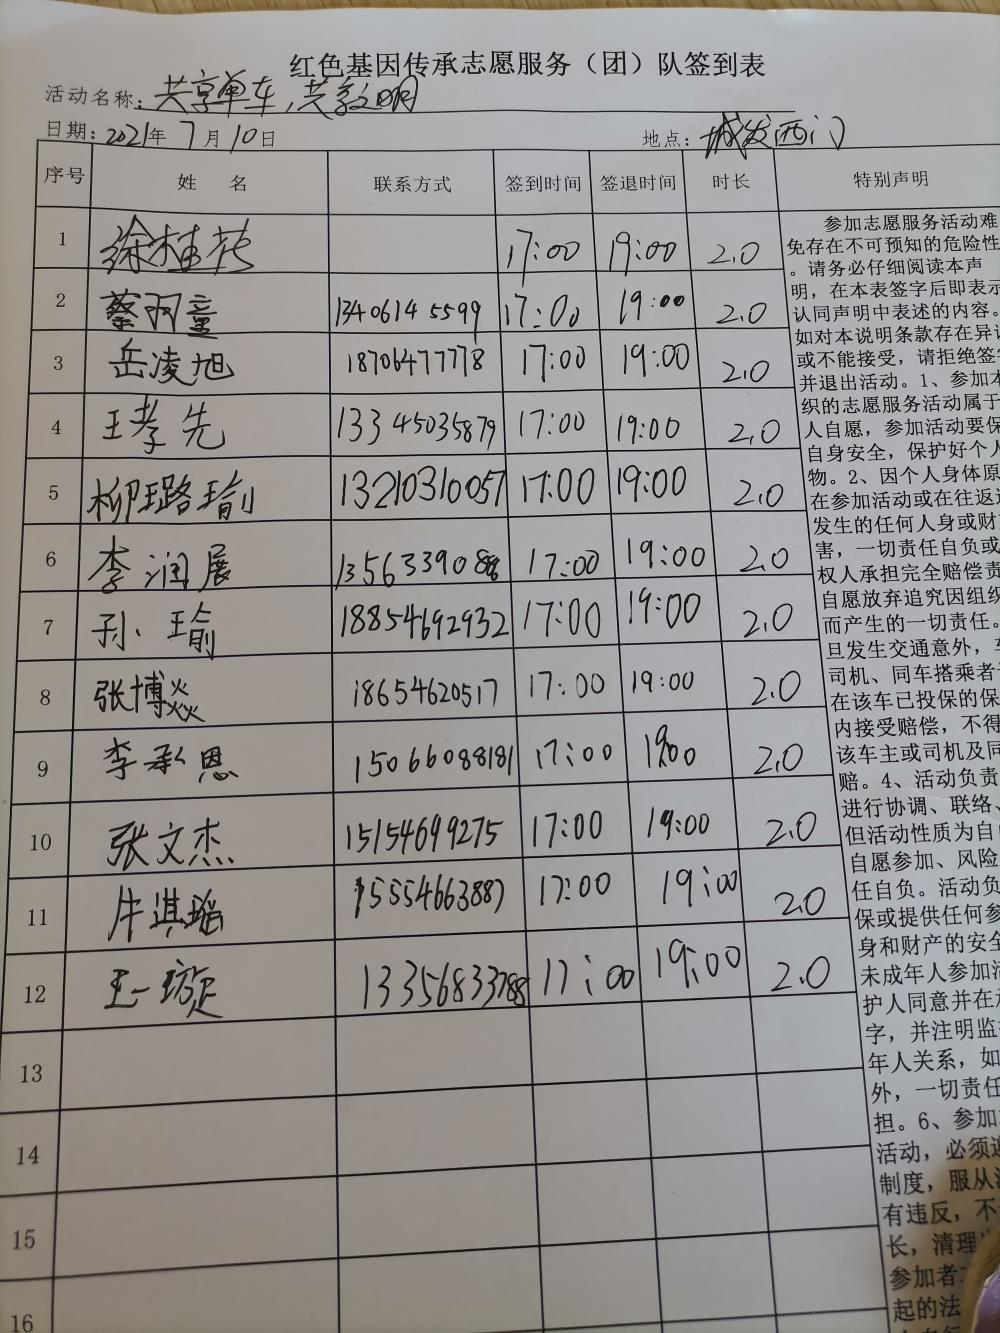 红色基因传承志愿服务（团）队签到表
活动名称：共享单车，共享文明
日期：2021年7月10日 地点：城发西门
序号 姓名 联系方式 签到时间 签退时间 时长 特别声明
1 徐桂花 17:00 19:00 2.0
2 蔡羽童 13406145599 17:00 19:00 2.0
3 岳凌旭 18706477778 17:00 19:00 2.0
4 王孝先 13345035879 17:00 19:00 2.0
5 柳璐瑜 13210310057 17:00 19:00 2.0
6 李润展 135633908 17:00 19:00 2.0
7 孙瑜 18854692932 17:00 19:00 2.0
8 张博焱 18654620517 17:00 19:00 2.0
9 李承恩 15066088181 17:00 19:00 2.0
10 张文杰 15154699275 17:00 19:00 2.0
11 牛淇瑶 15554663887 17:00 19:00 2.0
12 王一璇 13356833788 17:00 19:00 2.0
13
14
15
16
参加志愿服务活动难
免存在不可预知的危险性
。请务必仔细阅读本声
明，在本表签字后即表示
认同声明中表述的内容。
如对本说明条款存在异议
或不能接受，请拒绝签字
并退出活动。1、参加本
织的志愿服务活动属于
人自愿，参加活动要保
自身安全，保护好个人
物。2、因个人身体原
在参加活动或在往返途
发生的任何人身或财产
害，一切责任自负或
权人承担完全赔偿责
自愿放弃追究因组织
而产生的一切责任。
旦发生交通意外，车
司机、同车搭乘者
在该车已投保的保
内接受赔偿，不得
该车主或司机及同
赔。4、活动负责
进行协调、联络、
但活动性质为自
自愿参加、风险
任自负。活动负
保或提供任何参
身和财产的安全
未成年人参加活
护人同意并在
字，并注明监
年人关系，如
外，一切责任
担。6、参加
活动，必须遵
制度，服从
有违反，不
长，清理
参加者
起的法